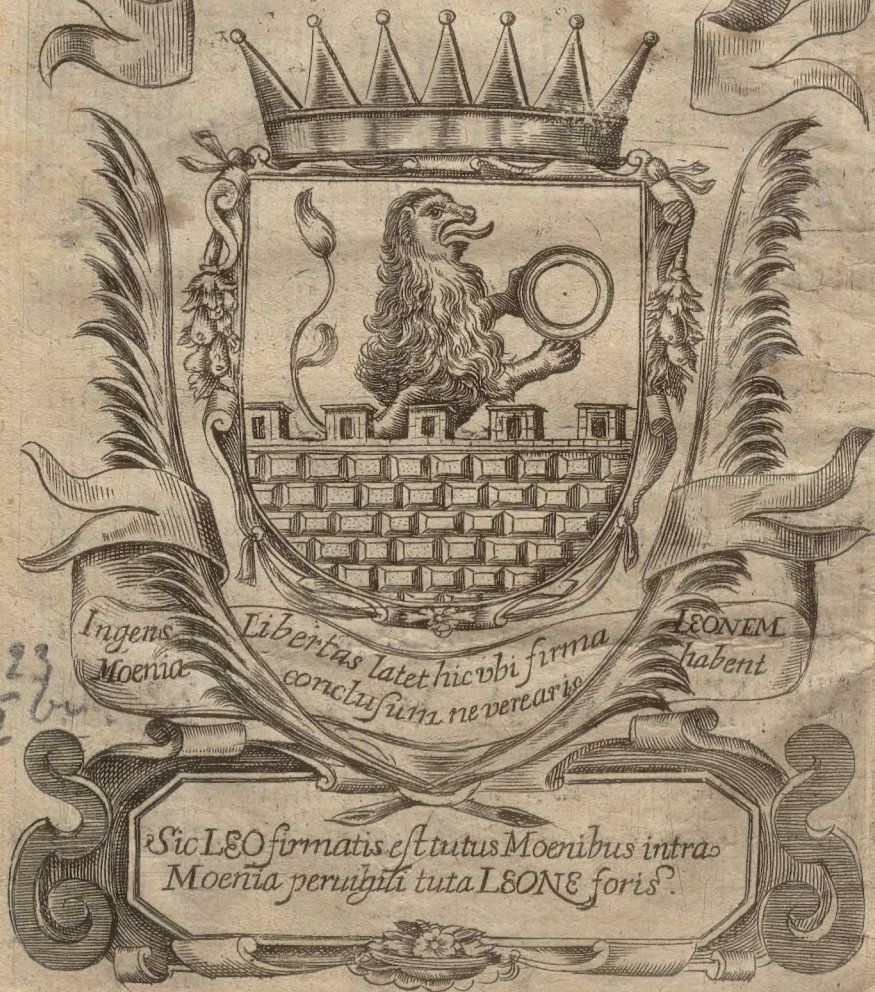 Ingens Libertas latet hic vbi firma LEONEM
Moenia conclusum ne verearis habent
Sic LEO firmatis est tutus Moenibus intra
Moenia peruigili tuta LEONE foris.
23